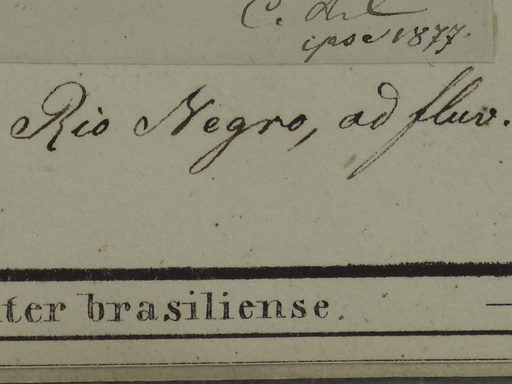 C.
ipse 1877.
Rio Negro, ad fluv.
iter brasiliense.